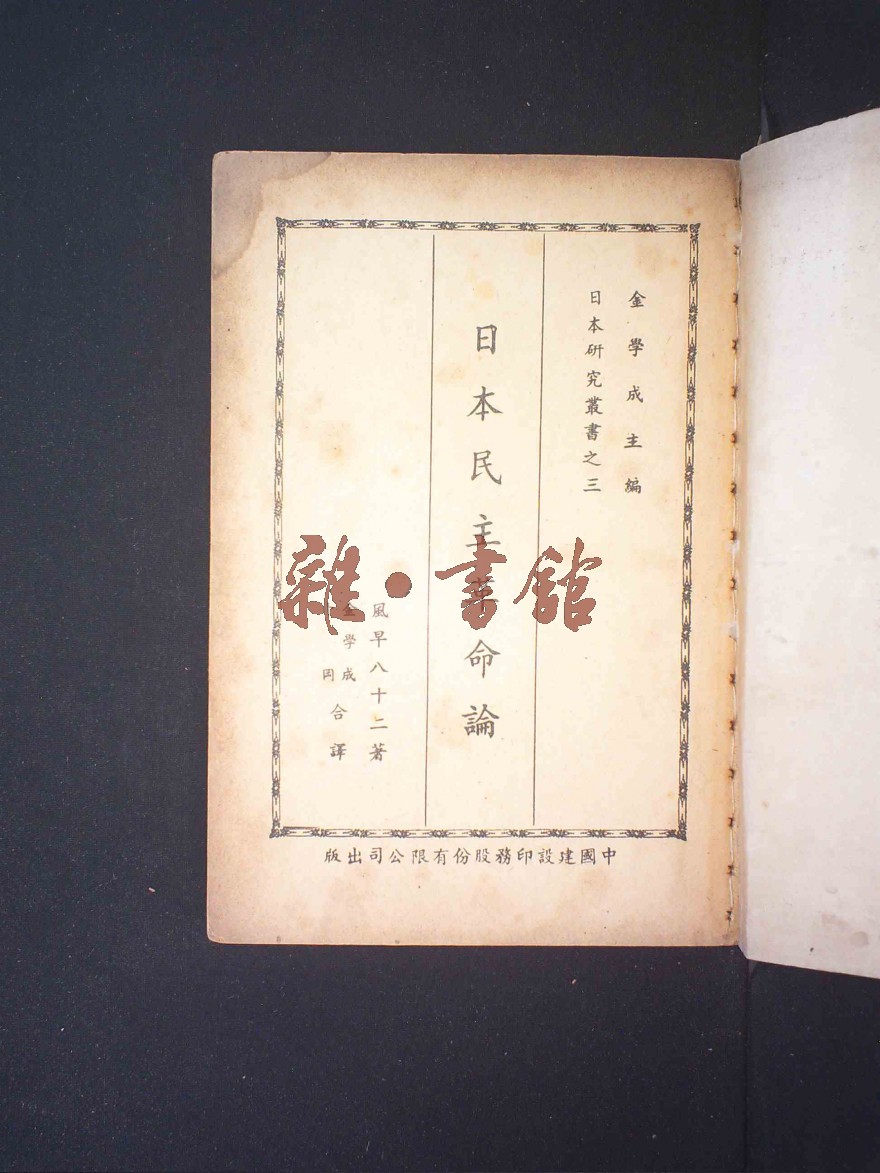 金學成主編
日本研究叢書之三
日本民主革命論
風早八十二著
金學成
岡
合譯
中國建設印務股份有限公司出版
雜·書館